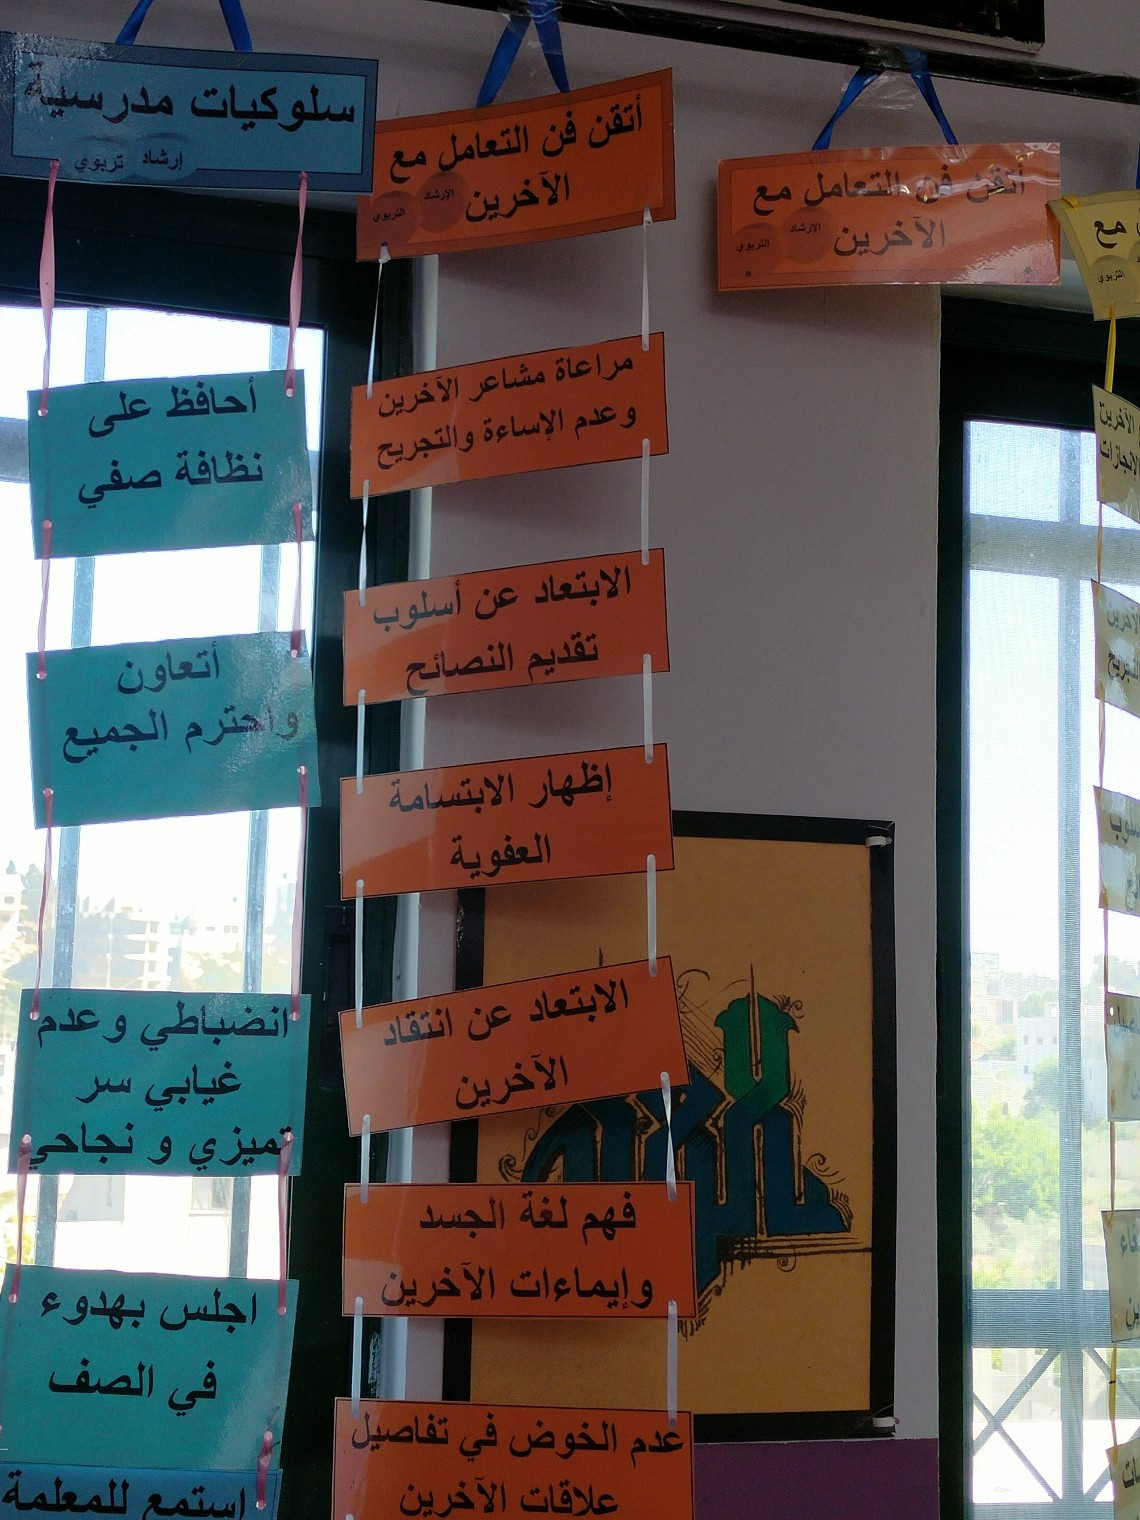 سلوكيات مدرسية
إرشاد تربوي
أحافظ على
نظافة صفي
أتعاون
واحترم الجميع
انضباطي وعدم
غيابي سر
تميزي و نجاحي
اجلس بهدوء
في الصف
استمع للمعلمة
أتقن فن التعامل مع
الآخرين
الإرشاد
التربوي
مراعاة مشاعر الآخرين
وعدم الإساءة والتجريح
الابتعاد عن أسلوب
تقديم النصائح
إظهار الابتسامة
العفوية
الابتعاد عن انتقاد
الآخرين
فهم لغة الجسد
وإيماءات الآخرين
عدم الخوض في تفاصيل
علاقات الآخرين
أتقن فن التعامل مع
الآخرين
الإرشاد
التربوي
مع
التربوي
الآخرين